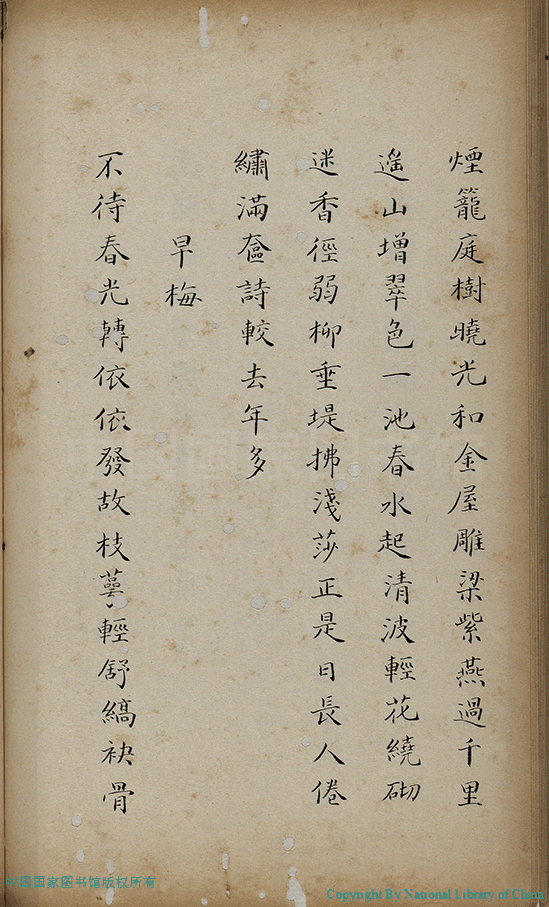 煙籠庭樹曉光和金屋雕梁紫燕過千里
遥山增翠色一池春水起清波輕花繞砌
迷香徑弱柳垂堤拂淺莎正是日長人倦
繡滿奩詩較去年多
早梅
不待春光轉依依發故枝萼輕舒縞袂骨
中国国家图书馆版权所有
Copyright By National Library of China